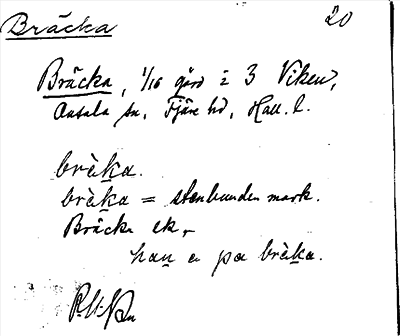 Bräcka 20
Bräcka, 1/16 gård i 3 Viken,
Onsala sn, Fjäre hd, Hall. l.
brèka.
brèka = stenbunden mark.
Bräcke ek,
han e pa brèka.